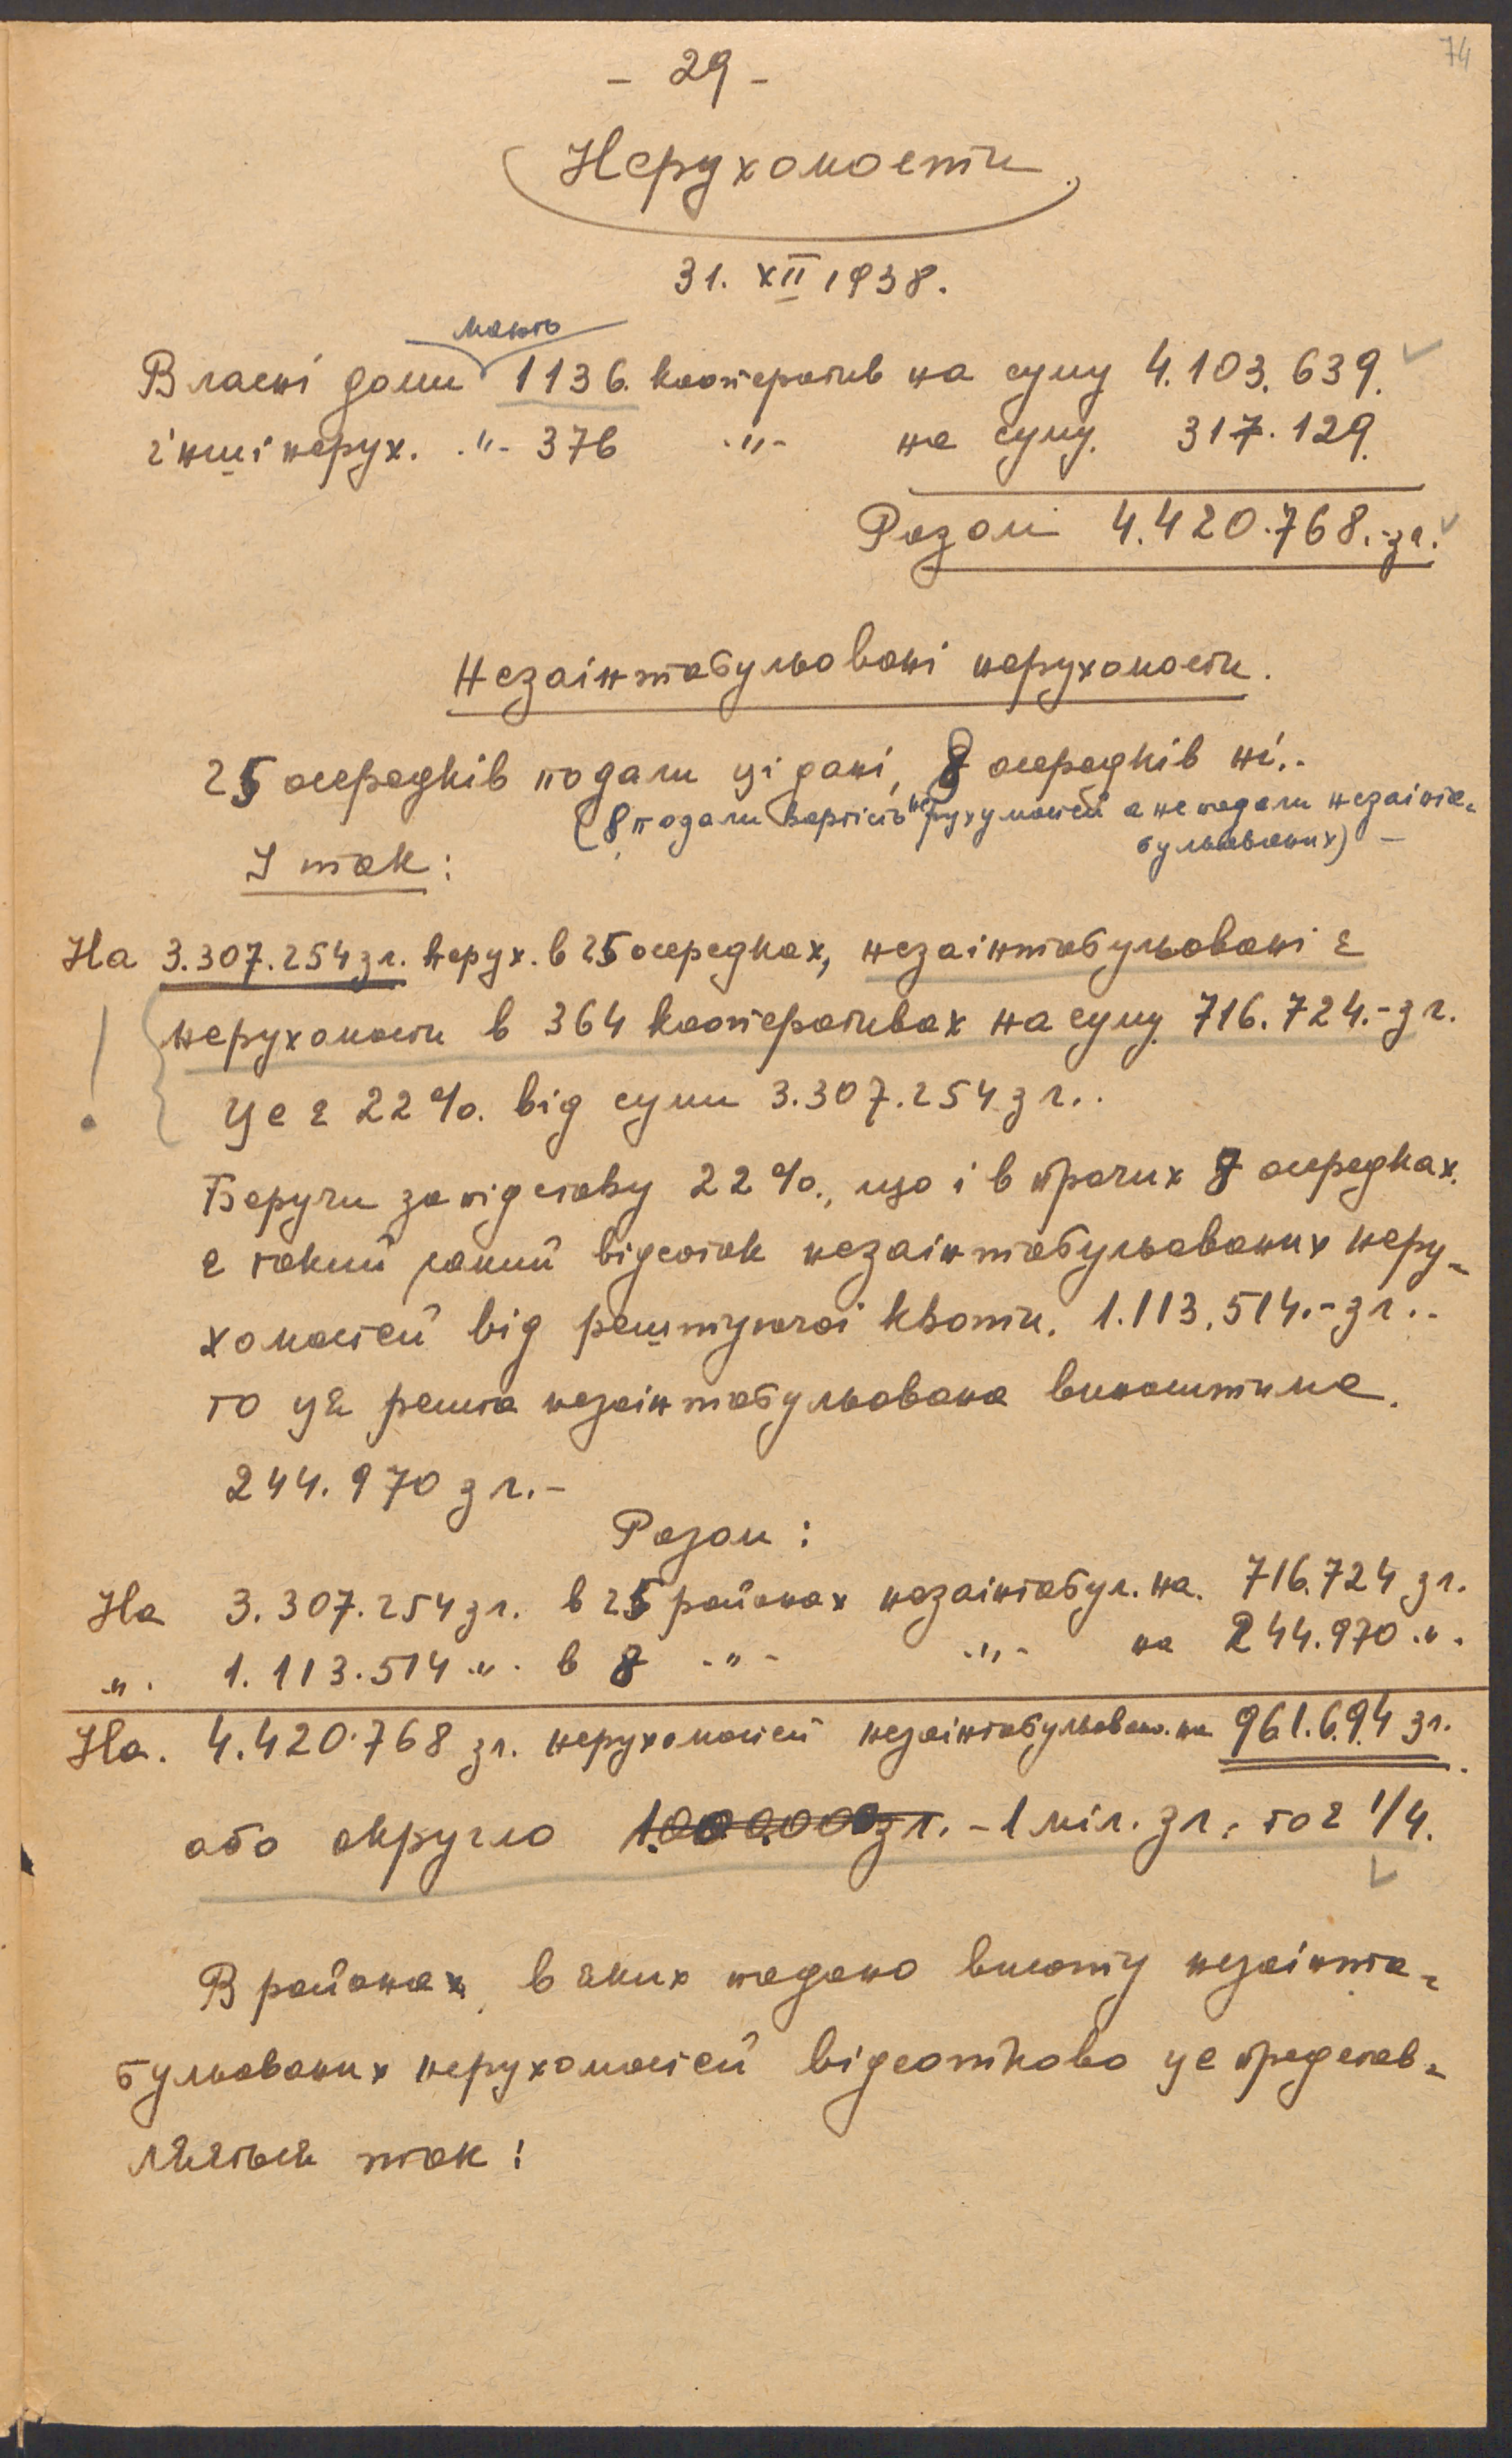 74
- 29 -
Нерухомости.
31. XII 1938.
мають
Власні доми 1136. кооператив на суму 4.103.639.
інші нерух. -"- 376 -"- на суму. 317.129.
Разом 4.420.768.-зл.
Незаінтабульовані нерухомости.
25 осередків подали ці дані, 8 осередків ні.-
(8 подали вартість нерухомостей а не подали незаінта-
бульованих) -
І так:
На 3.307.254 зл. нерух. в 25 осередках, незаінтабульовані є
! нерухомости в 364 кооперативах на суму 716.724.- зл.
Це є 22%. від суми 3.307.254 зл..
Беручи за підставу 22%., що і в прочих 8 осередках.
є такий самий відсоток незаінтабульованих неру-
хомостей від рештуючої квоти. 1.113.514.- зл..-
то ця решта незаінтабульована виноситиме.
244.970 зл.-
Разом:
На 3.307.254 зл. в 25 районах незаінтабул. на. 716.724 зл.
-"- 1.113.514 -"- в 8 -"- -"- на 244.970 -"-
На. 4.420.768 зл. нерухомостей незаінтабульован. на 961.694 зл.
або округло 1.000.000 зл. - 1 міл. зл. то є 1/4.
В районах, в яких подано висоту незаінта-
бульованих нерухомостей відсотково це представ-
ляється так: